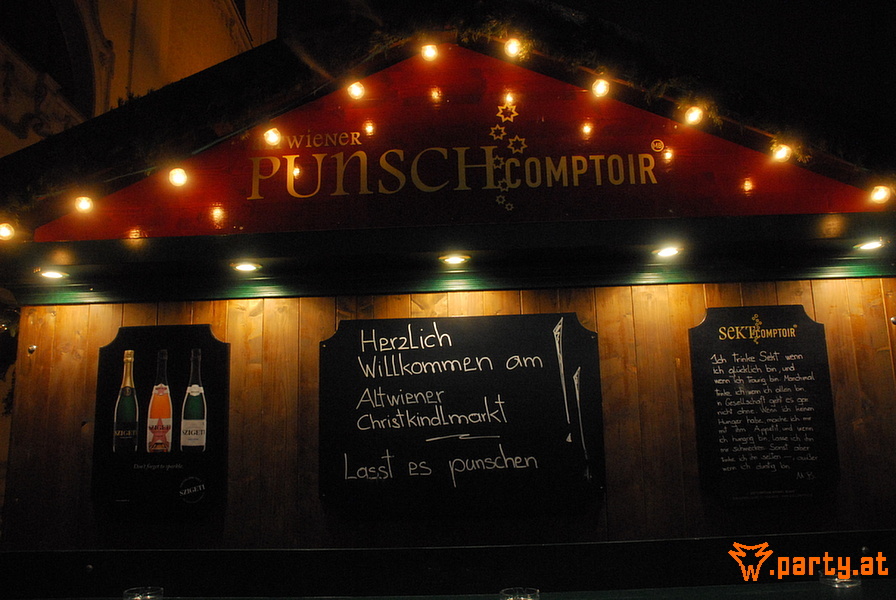 WIENER
PUNSCH COMPTOIR
MB
Herzlich
Willkommen am
Altwiener
Christkindlmarkt
Lasst es punschen
SZIGETI SZIGETI SZIGETI
SZIGETI
SEKT COMPTOIR
Ich trinke Sekt wenn
ich glücklich bin, und
wenn ich traurig bin. Manchmal
trinke ich wenn ich allein bin.
in Gesellschaft geht es gar
nicht ohne. Wenn ich keinen
Hunger habe, mache ich mir
mit ihm Appetit, und wenn
ich hungrig bin, lasse ich ihn
mir schmecken. Sonst aber
ich ihn selten, außer
wenn ich durstig bin.
W.party.at